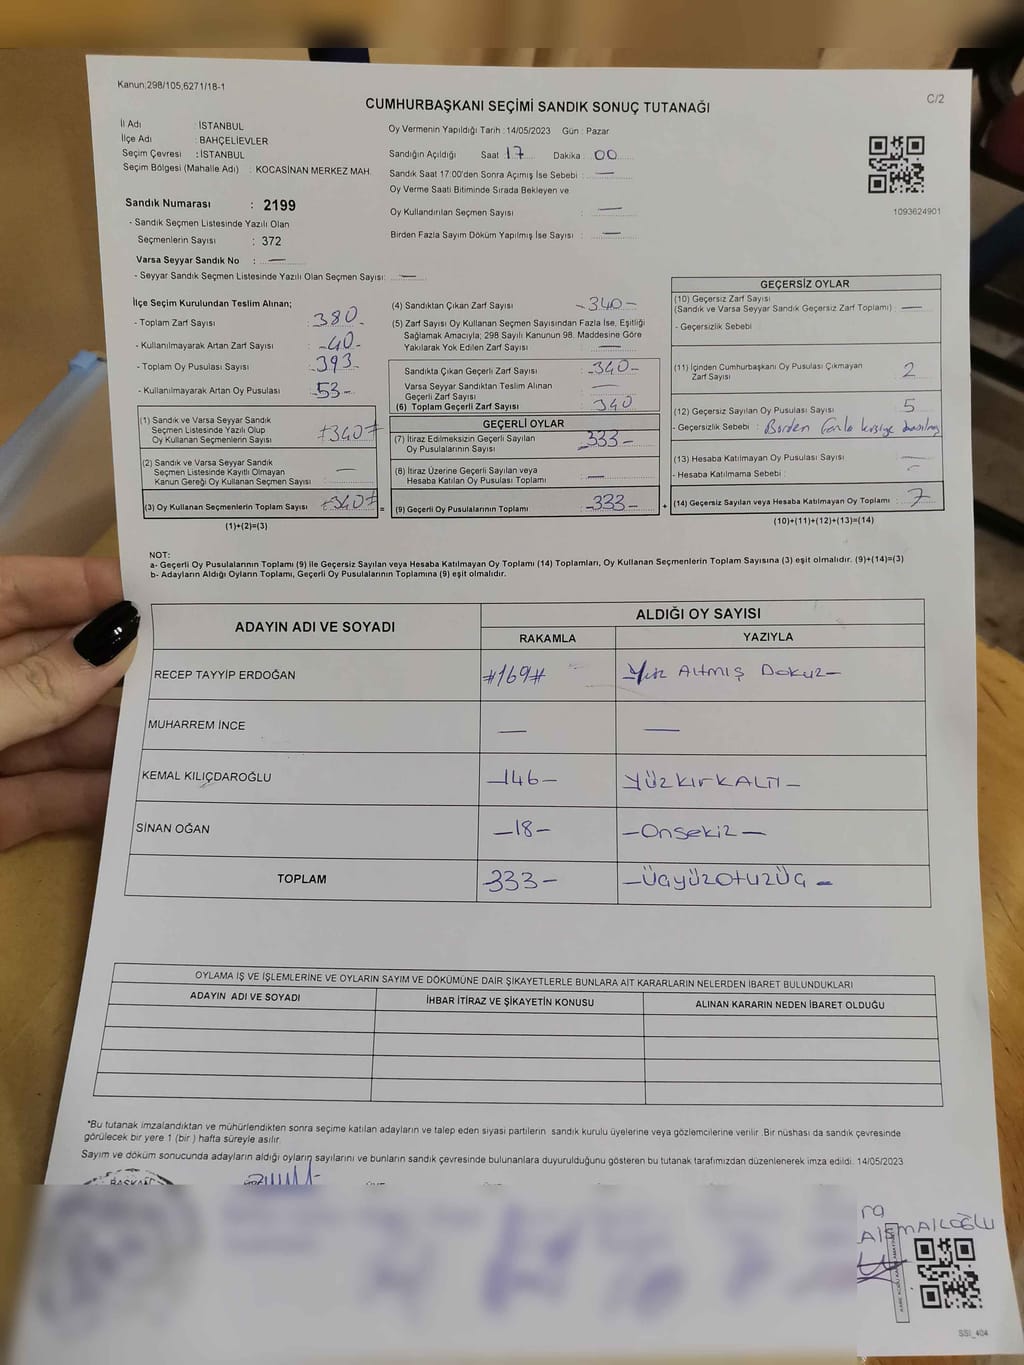 Kanun;298/105,6271/18-1
C/2
CUMHURBAŞKANI SEÇİMİ SANDIK SONUÇ TUTANAĞI
İl Adı : İSTANBUL
İlçe Adı : BAHÇELİEVLER
Seçim Çevresi : İSTANBUL
Seçim Bölgesi (Mahalle Adı) : KOCASİNAN MERKEZ MAH.
Sandık Numarası : 2199
- Sandık Seçmen Listesinde Yazılı Olan
Seçmenlerin Sayısı : 372
Varsa Seyyar Sandık No : —
- Seyyar Sandık Seçmen Listesinde Yazılı Olan Seçmen Sayısı: —
Oy Vermenin Yapıldığı Tarih : 14/05/2023 Gün : Pazar
Sandığın Açıldığı Saat 17 Dakika 00
Sandık Saat 17:00'den Sonra Açımış İse Sebebi : —
Oy Verme Saati Bitiminde Sırada Bekleyen ve
Oy Kullandırılan Seçmen Sayısı : —
Birden Fazla Sayım Döküm Yapılmış İse Sayısı : —
1093624901
İlçe Seçim Kurulundan Teslim Alınan;
- Toplam Zarf Sayısı : 380-
- Kullanılmayarak Artan Zarf Sayısı : -40-
- Toplam Oy Pusulası Sayısı : 393-
- Kullanılmayarak Artan Oy Pusulası : 53-
(1) Sandık ve Varsa Seyyar Sandık
Seçmen Listesinde Yazılı Olup
Oy Kullanan Seçmenlerin Sayısı : #340#
(2) Sandık ve Varsa Seyyar Sandık
Seçmen Listesinde Kayıtlı Olmayan
Kanun Gereği Oy Kullanan Seçmen Sayısı : —
(3) Oy Kullanan Seçmenlerin Toplam Sayısı : #340# =
(1)+(2)=(3)
(4) Sandıktan Çıkan Zarf Sayısı : -340-
(5) Zarf Sayısı Oy Kullanan Seçmen Sayısından Fazla İse, Eşitliği
Sağlamak Amacıyla; 298 Sayılı Kanunun 98. Maddesine Göre
Yakılarak Yok Edilen Zarf Sayısı : —
Sandıkta Çıkan Geçerli Zarf Sayısı : -340-
Varsa Seyyar Sandıktan Teslim Alınan
Geçerli Zarf Sayısı : —
(6) Toplam Geçerli Zarf Sayısı : 340
GEÇERLİ OYLAR
(7) İtiraz Edilmeksizin Geçerli Sayılan
Oy Pusulası Sayısı : -333-
(8) İtiraz Üzerine Geçerli Sayılan veya
Hesaba Katılan Oy Pusulası Toplamı : —
(9) Geçerli Oy Pusulalarının Toplamı : -333- +
GEÇERSİZ OYLAR
(10) Geçersiz Zarf Sayısı
(Sandık ve Varsa Seyyar Sandık Geçersiz Zarf Toplamı) : —
- Geçersizlik Sebebi
(11) İçinden Cumhurbaşkanı Oy Pusulası Çıkmayan
Zarf Sayısı : 2
(12) Geçersiz Sayılan Oy Pusulası Sayısı : 5
- Geçersizlik Sebebi : Birden fazla kişiye basılmış
(13) Hesaba Katılmayan Oy Pusulası Sayısı : —
- Hesaba Katılmama Sebebi :
(14) Geçersiz Sayılan veya Hesaba Katılmayan Oy Toplamı : 7
(10)+(11)+(12)+(13)=(14)
NOT:
a- Geçerli Oy Pusulalarının Toplamı (9) ile Geçersiz Sayılan veya Hesaba Katılmayan Oy Toplamı (14) Toplamları, Oy Kullanan Seçmenlerin Toplam Sayısına (3) eşit olmalıdır. (9)+(14)=(3)
b- Adayların Aldığı Oyların Toplamı, Geçerli Oy Pusulalarının Toplamına (9) eşit olmalıdır.
ADAYIN ADI VE SOYADI
ALDIĞI OY SAYISI
RAKAMLA YAZIYLA
RECEP TAYYİP ERDOĞAN #169# Yüz Altmış Dokuz-
MUHARREM İNCE — —
KEMAL KILIÇDAROĞLU -146- YüzkırkALTI-
SİNAN OĞAN -18- -Onsekiz-
TOPLAM 333- -ÜçyüzotuzÜç-
OYLAMA İŞ VE İŞLEMLERİNE VE OYLARIN SAYIM VE DÖKÜMÜNE DAİR ŞİKAYETLERLE BUNLARA AİT KARARLARIN NELERDEN İBARET BULUNDUKLARI
ADAYIN ADI VE SOYADI İHBAR İTİRAZ VE ŞİKAYETİN KONUSU ALINAN KARARIN NEDEN İBARET OLDUĞU
*Bu tutanak imzalandıktan ve mühürlendikten sonra seçime katılan adayların ve talep eden siyasi partilerin sandık kurulu üyelerine veya gözlemcilerine verilir .Bir nüshası da sandık çevresinde
görülecek bir yere 1 (bir ) hafta süreyle asılır.
Sayım ve döküm sonucunda adayların aldığı oyların sayılarını ve bunların sandık çevresinde bulunanlara duyurulduğunu gösteren bu tutanak tarafımızdan düzenlenerek imza edildi. 14/05/2023
BAŞKAN
SSI_404